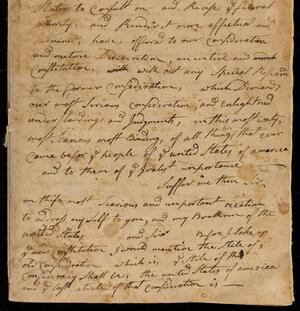 States to Consult on and Revise ye federal
and Render it more affectual and
have, offered to our Consideration
and mature Discussion, an entire and
Constitution, with out any Special Reference
to the former Confederation, which Demands
our most Serious Consideration, and enlightned
understandings and Judgments, in this most waty,
most Famous most Binding, of all things that ever
came before ye people of ye united States of america
and to them of ye gratest importance —
Suffer me then Sir,
on this most Searious and important occation
to address my Self to you, and my Breatheren of the
united States and Sir Before I take up
ye new Constitution I would mention the Stile of ye
old Confederation which is, ye Stile of this
Confederacy Shall be, the united States of america
and ye last article of that Confederation is —